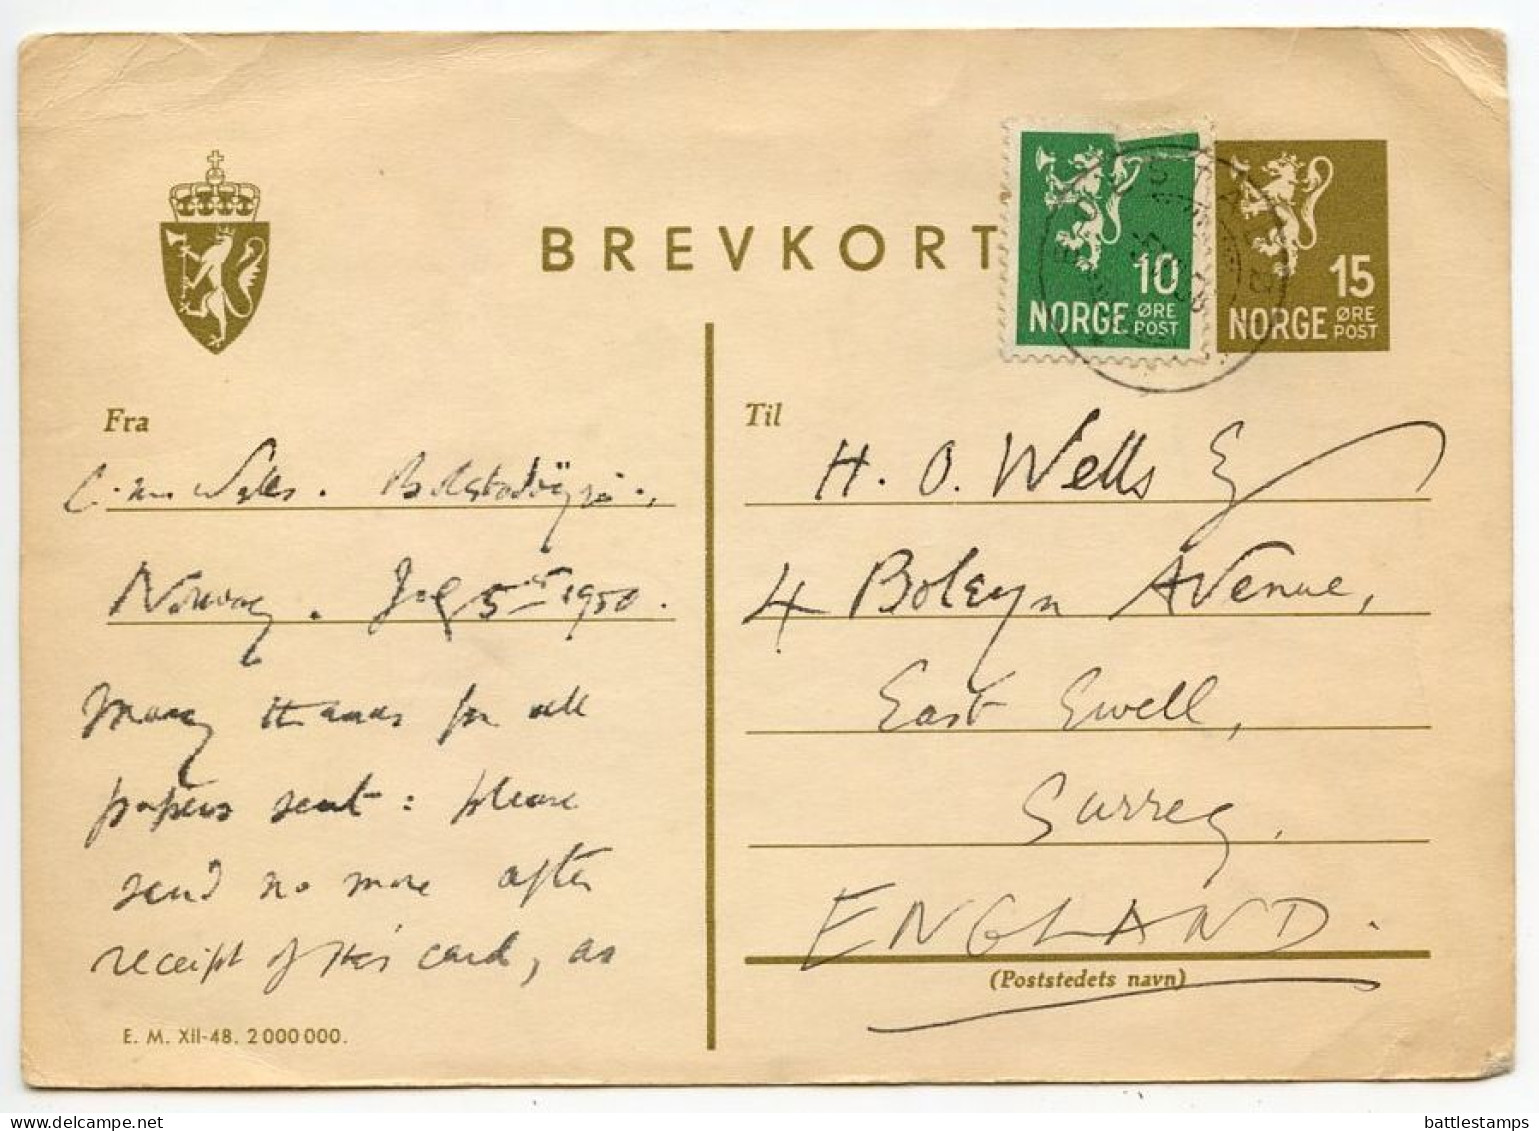 BREVKORT
10
NORGE ØRE POST
15
NORGE ØRE POST
Fra
Wells. Bolstadöyri.,
Norway. July 5th 1950.
Many thanks for all
papers sent: please
send no more after
receipt of this card, as
E. M. XII-48. 2 000 000.
Til
H. O. Wells Esq
4 Boleyn Avenue,
East Ewell,
Surrey.
ENGLAND.
(Poststedets navn)
battlestamps